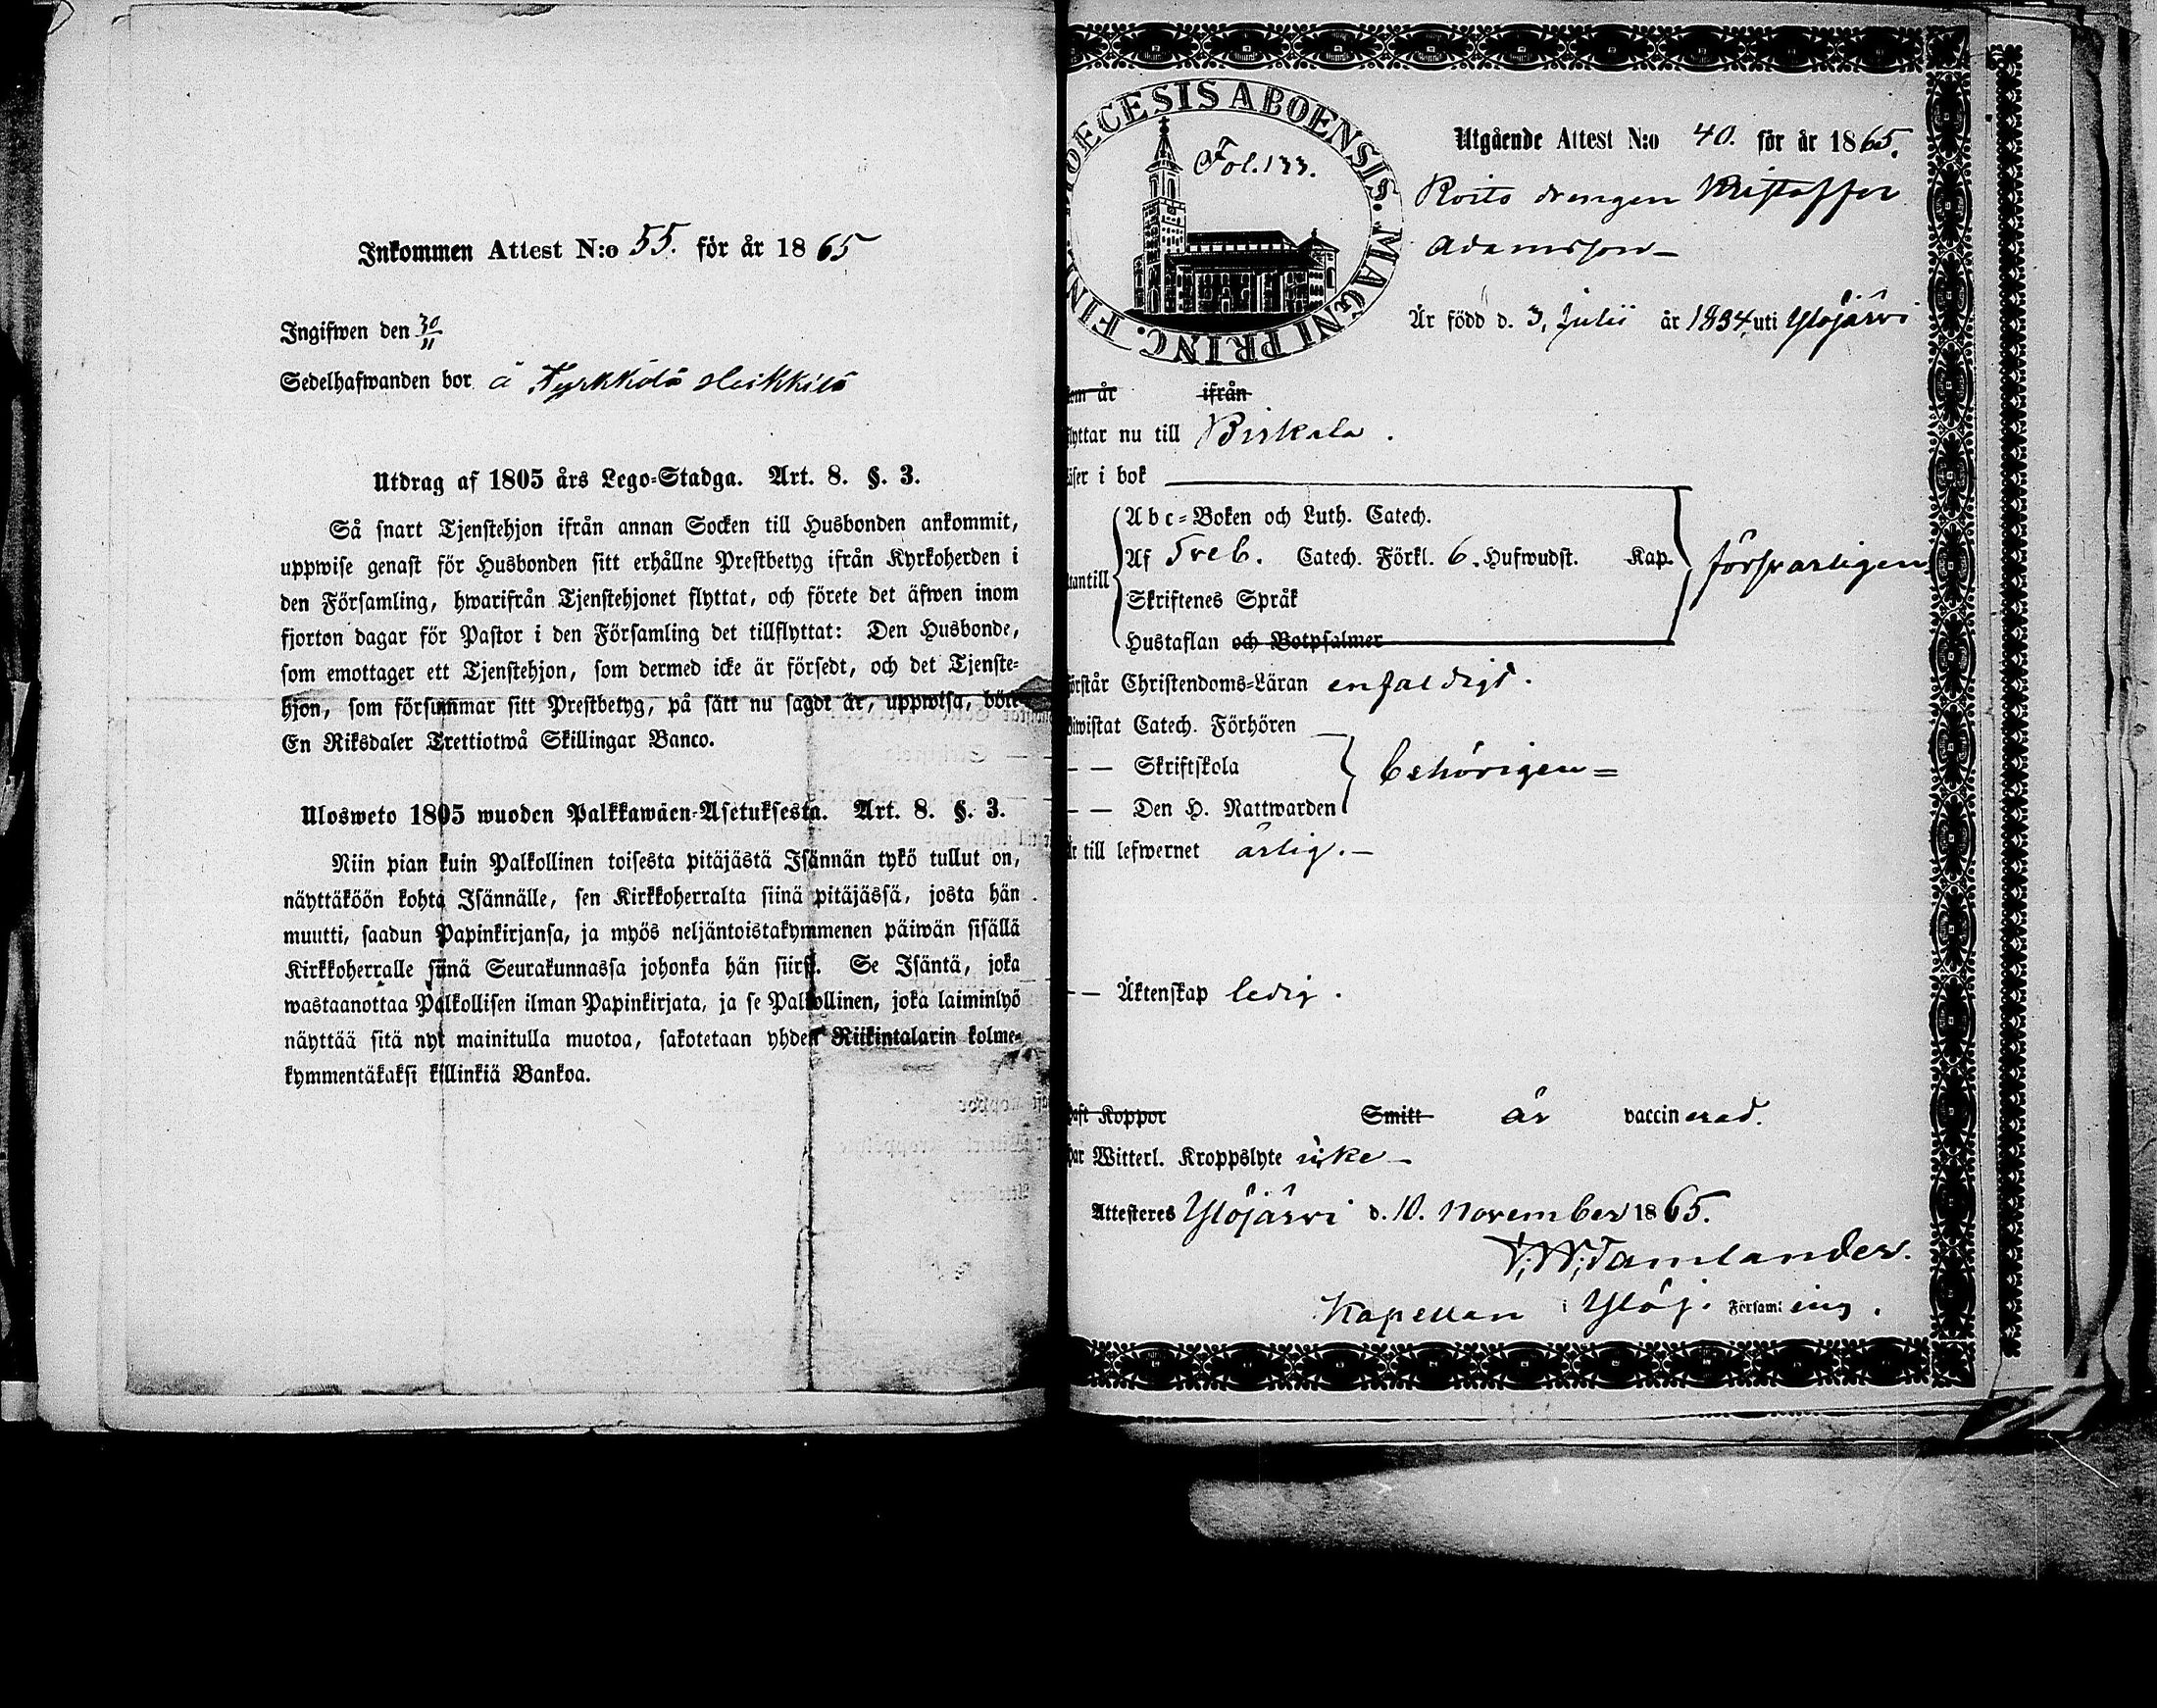 Inkommen Attest N:o 55. för år 1865
Ingifwen den 30/11
Sedelhafwanden bor å Kyrkkölä Heikkilä
Utdrag af 1805 års Lego-Stadga. Art. 8. §. 3.
Så snart Tjenstehjon ifrån annan Socken till Husbonden ankommit,
uppwise genast för Husbonden sitt erhållne Prestbetyg ifrån Kyrkoherden i
den Församling, hwarifrån Tjenstehjonet flyttat, och förete det äfwen inom
fjorton dagar för Pastor i den Församling det tillflyttat: Den Husbonde,
som emottager ett Tjenstehjon, som dermed icke är försedt, och det Tjenste-
hjon, som försummar sitt Prestbetyg, på sätt nu sagdt är, uppwisa, böte
En Riksdaler Trettiotwå Skillingar Banco.
Ulosweto 1805 wuoden Palkkawäen-Asetuksesta. Art. 8. §. 3.
Niin pian kuin Palkollinen toisesta pitäjästä Isännän tykö tullut on,
näyttäköön kohta Isännälle, sen Kirkkoherralta siinä pitäjässä, josta hän
muutti, saadun Papinkirjansa, ja myös neljäntoistakymmenen päiwän sisällä
Kirkkoherralle siinä Seurakunnassa johonka hän siirsi. Se Isäntä, joka
wastaanottaa Palkollisen ilman Papinkirjata, ja se Palkollinen, joka laiminlyö
näyttää sitä nyt mainitulla muotoa, sakotetaan yhden Riikintalarin kolme-
kymmentäkaksi killinkiä Bankoa.
DIOECESIS ABOENSIS. MAGNI PRINC. FINL.
Fol. 133.
Utgående Attest N:o 40. för år 1865.
Roito drengen Kristoffer
Adamsson
Är född d. 3, Julii år 1834 uti Ylöjärvi
em år ifrån
lyttar nu till Birkala.
äser i bok
Abc-Boken och Luth. Catech.
Af Treb. Catech. Förkl. 6. Hufwudst. Kap.
tantill
Skriftenes Språk
Hustaflan och Botpsalmer
försvarligen
örstår Christendoms-Läran enfaldigt.
iwistat Catech. Förhören
— — Skriftskola
behörigen
— — Den H. Nattwarden
Är till lefwernet ärlig.
— — Äktenskap ledig.
haft Koppor Smitt är vaccinerad.
har Witterl. Kroppslyte icke
Attesteres Ylöjärvi d. 10. November 1865.
V. W. Tamlander.
Kapellan i Ylöj. Församling.